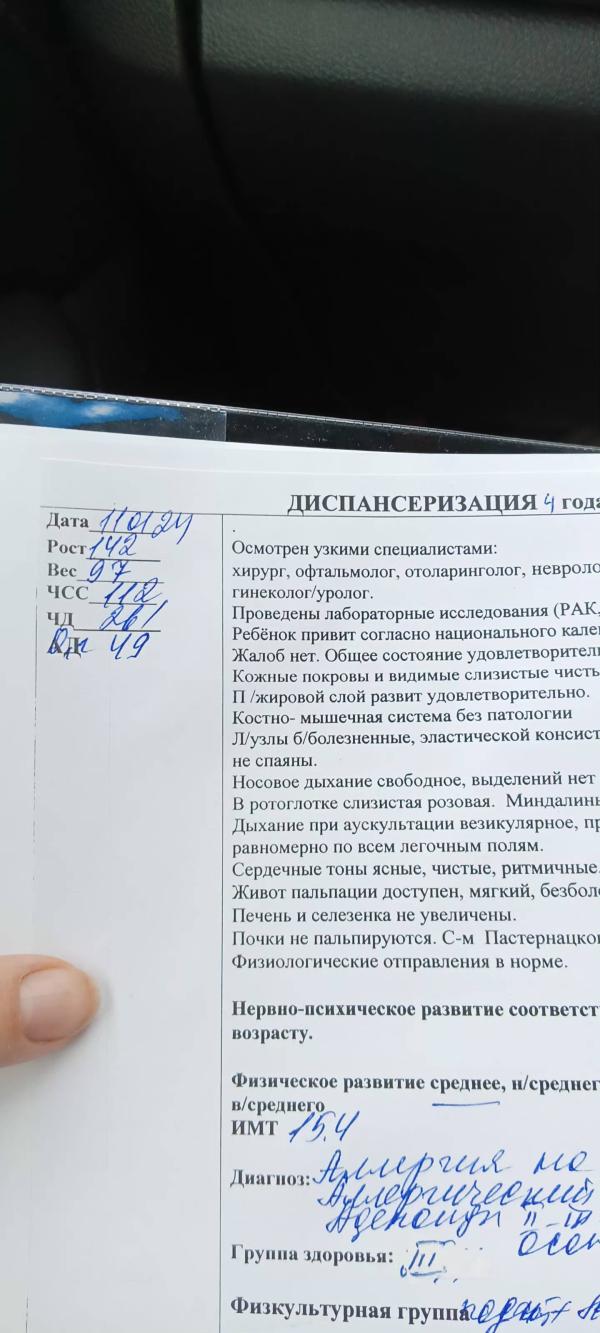 ДИСПАНСЕРИЗАЦИЯ 4 года
Дата 110124
Рост 142
Вес 97
ЧСС 112
ЧД 26/
АД 49
Осмотрен узкими специалистами:
хирург, офтальмолог, отоларинголог, невроло
гинеколог/уролог.
Проведены лабораторные исследования (РАК,
Ребёнок привит согласно национального кале
Жалоб нет. Общее состояние удовлетворитель
Кожные покровы и видимые слизистые чисть
П /жировой слой развит удовлетворительно.
Костно- мышечная система без патологии
Л/узлы б/болезненные, эластической консист
не спаяны.
Носовое дыхание свободное, выделений нет
В ротоглотке слизистая розовая. Миндалины
Дыхание при аускультации везикулярное, пр
равномерно по всем легочным полям.
Сердечные тоны ясные, чистые, ритмичные.
Живот пальпации доступен, мягкий, безболе
Печень и селезенка не увеличены.
Почки не пальпируются. С-м Пастернацко
Физиологические отправления в норме.
Нервно-психическое развитие соответст
возрасту.
Физическое развитие среднее, н/среднег
в/среднего
ИМТ 15.4
Диагноз: Аллергия на
Аллергический
Аденоиды II-III
Группа здоровья: III
Физкультурная группа